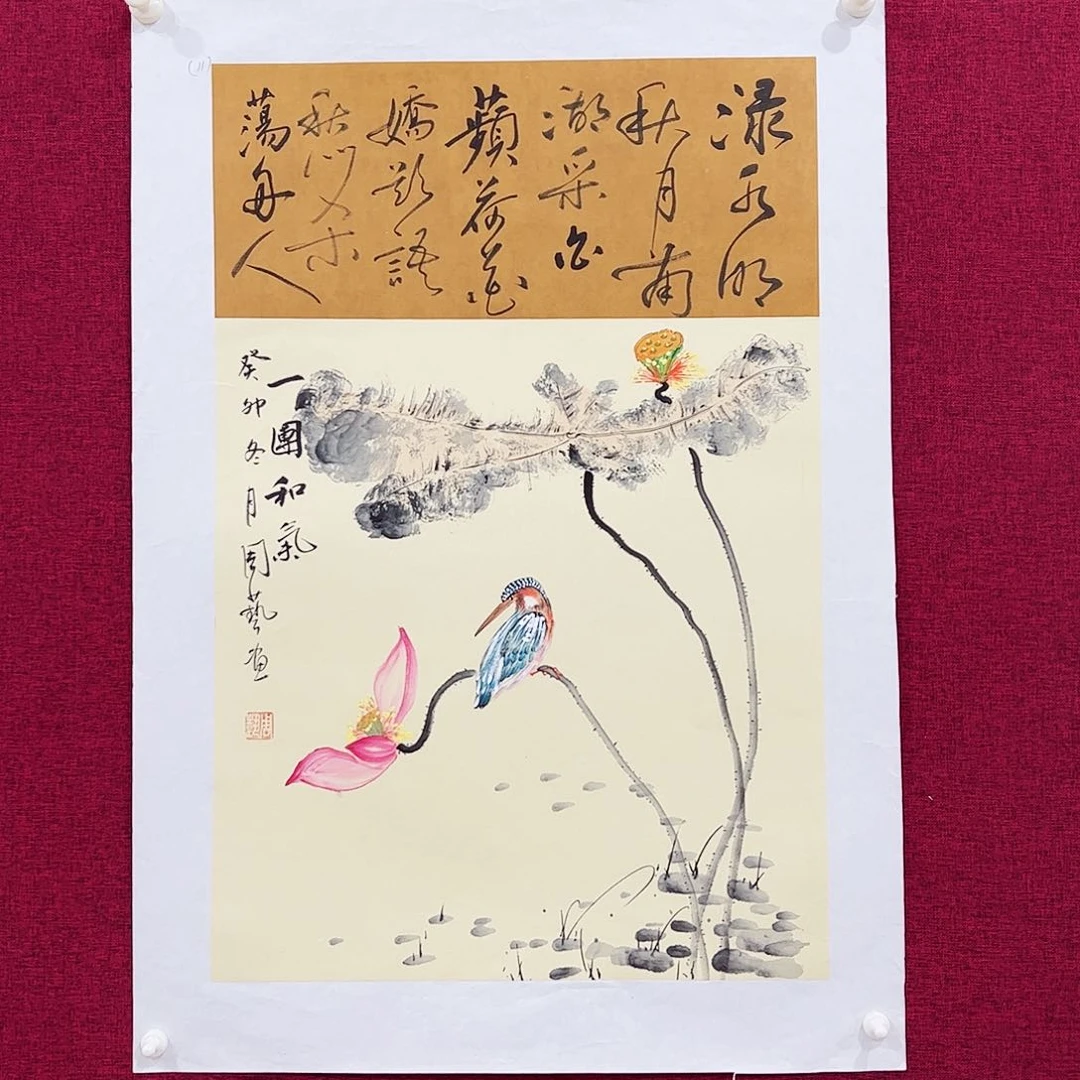 渌水明
秋月南
湖采白
蘋荷花
嬌欲語
愁殺
蕩舟人
一團和氣
癸卯冬月周藝画
(11)